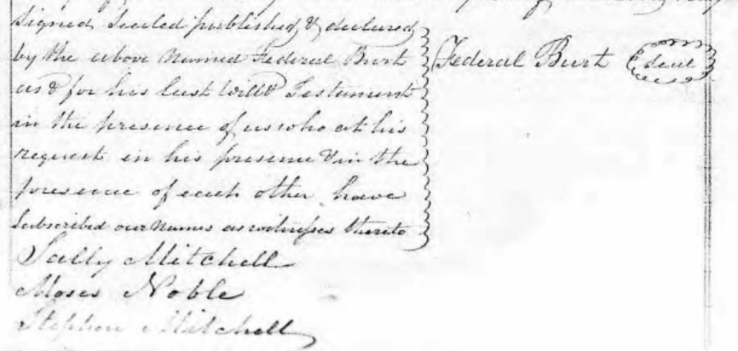 Signed Sealed published & declared
by the above named Federal Burt
as & for his last Will & Testament
in the presence of us who at his
request in his presence & in the
presence of each other have
subscribed our names as witnesses thereto
Federal Burt Seal
Sally Mitchell
Moses Noble
Stephen Mitchell